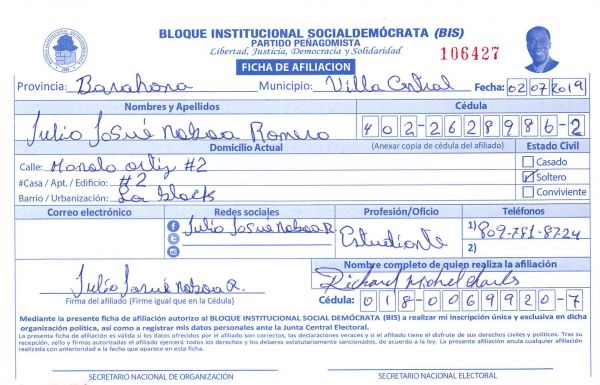 BLOQUE INSTITUCIONAL SOCIALDEMÓCRATA (BIS)
PARTIDO PEÑAGOMISTA
Libertad, Justicia, Democracia y Solidaridad
106427
FICHA DE AFILIACION
Provincia: Barahona Municipio: Villa Central Fecha: 02/07/2019
Nombres y Apellidos Cédula
Julio Josué Noboa Romero 402-2628986-2
Domicilio Actual (Anexar copia de cédula del afiliado) Estado Civil
Calle: Manolo Ortiz #2 Casado
#Casa / Apt. / Edificio: #2 Soltero
Barrio / Urbanización: Los blocks Conviviente
Correo electrónico Redes sociales Profesión/Oficio Teléfonos
Julio Josué Noboa R. Estudiante 1) 809-781-8724
2)
Nombre completo de quien realiza la afiliación
Julio Josué Noboa R. Richard Michel
Firma del afiliado (Firme igual que en la Cédula) Cédula: 018-0069920-7
Mediante la presente ficha de afiliación autorizo al BLOQUE INSTITUCIONAL SOCIAL DEMÓCRATA (BIS) a realizar mi inscripción única y exclusiva en dicha
organización política, así como a registrar mis datos personales ante la Junta Central Electoral.
La presente ficha de afiliación es válida si los datos ofrecidos por el afiliado son correctos, las declaraciones veraces y si el afiliado tiene el disfrute de sus derechos civiles y políticos. Tras su
recepción, sello y firmas autorizadas el afiliado ejercerá todos los derechos y los deberes estatutariamente sancionados, de acuerdo a la ley. La presente afiliación anula cualquier afiliación
realizada con anterioridad a la fecha que aparece en esta ficha.
SECRETARIO NACIONAL DE ORGANIZACIÓN SECRETARIO NACIONAL ELECTORAL